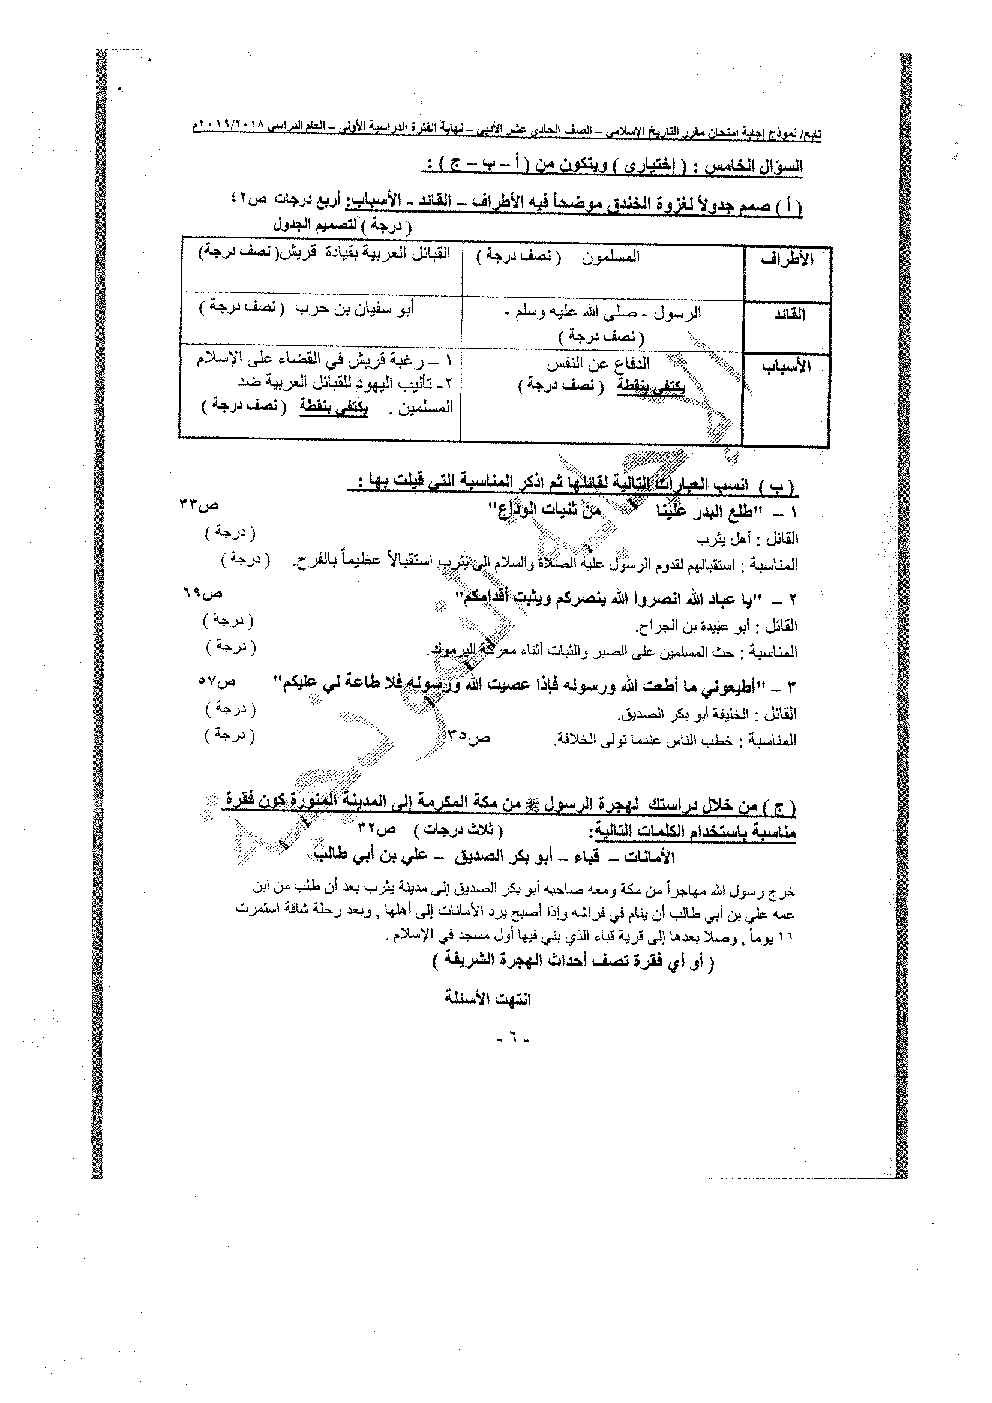 تابع/ نموذج إجابة امتحان مقرر التاريخ الإسلامي – الصف الحادي عشر الأدبي – نهاية الفترة الدراسية الأولى – العام الدراسي ٢٠١٩/٢٠١٨م
السؤال الخامس : ( إختياري ) ويتكون من ( أ – ب – ج ) :
( أ ) صمم جدولاً لغزوة الخندق موضحاً فيه الأطراف – القائد - الأسباب: أربع درجات ص٤٢
( درجة ) لتصميم الجدول
الأطراف
المسلمون ( نصف درجة )
القبائل العربية بقيادة قريش( نصف درجة)
القائد
الرسول - صلى الله عليه وسلم -
( نصف درجة )
أبو سفيان بن حرب ( نصف درجة )
الأسباب
الدفاع عن النفس
يكتفي بنقطة ( نصف درجة )
١ – رغبة قريش في القضاء على الإسلام
٢- تأليب اليهود للقبائل العربية ضد
المسلمين . يكتفي بنقطة ( نصف درجة )
( ب ) انسب العبارات التالية لقائلها ثم اذكر المناسبة التي قيلت بها :
١ – "طلع البدر علينا من ثنيات الوداع" ص٣٣
القائل : أهل يثرب ( درجة )
المناسبة : استقبالهم لقدوم الرسول عليه الصلاة والسلام إلى يثرب استقبالاً عظيماً بالفرح. ( درجة )
٢ – "يا عباد الله انصروا الله ينصركم ويثبت أقدامكم" ص٦٩
القائل : أبو عبيدة بن الجراح. ( درجة )
المناسبة : حث المسلمين على الصبر والثبات أثناء معركة اليرموك. ( درجة )
٣ – "أطيعوني ما أطعت الله ورسوله فإذا عصيت الله ورسوله فلا طاعة لي عليكم" ص٥٧
القائل : الخليفة أبو بكر الصديق. ( درجة )
المناسبة : خطب الناس عندما تولى الخلافة. ص٣٥ ( درجة )
( ج ) من خلال دراستك لهجرة الرسول ﷺ من مكة المكرمة إلى المدينة المنورة كون فقرة
مناسبة باستخدام الكلمات التالية: ( ثلاث درجات ) ص٣٢
الأمانات – قباء – أبو بكر الصديق – علي بن أبي طالب
خرج رسول الله مهاجراً من مكة ومعه صاحبه أبو بكر الصديق إلى مدينة يثرب بعد أن طلب من ابن
عمه علي بن أبي طالب أن ينام في فراشه وإذا أصبح يرد الأمانات إلى أهلها , وبعد رحلة شاقة استمرت
١٦ يوماً , وصلا بعدها إلى قرية قباء الذي بني فيها أول مسجد في الإسلام .
( أو أي فقرة تصف أحداث الهجرة الشريفة )
انتهت الأسئلة
- ٦ -